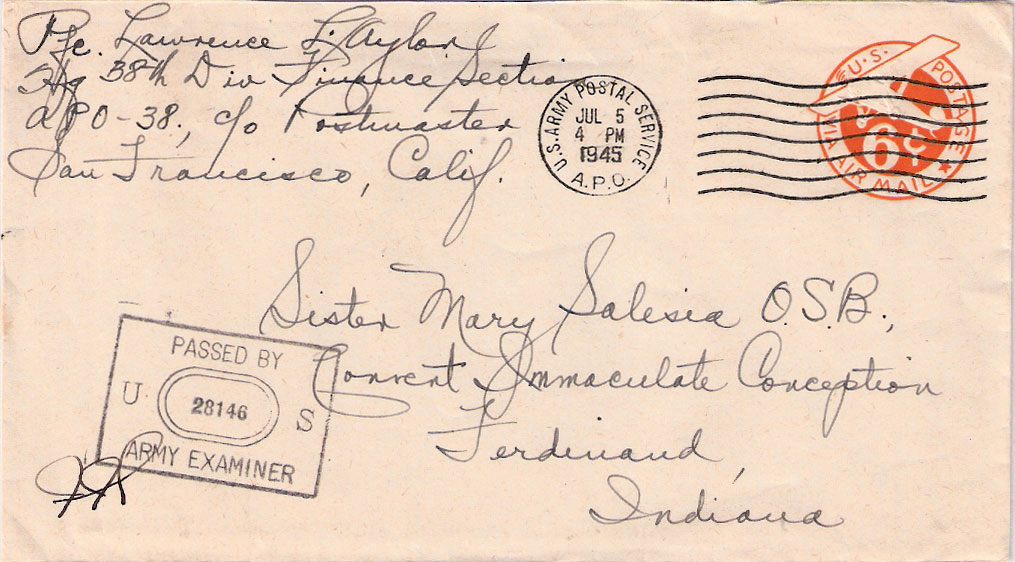 Pfc. Lawrence L. Aylor
Hq 38th Div Finance Section
APO-38, c/o Postmaster
San Francisco, Calif.
U.S. ARMY POSTAL SERVICE
JUL 5
4 PM
1945
A.P.O.
U.S. POSTAGE
VIA AIR MAIL
6¢
Sister Mary Salesia O.S.B.,
Convent Immaculate Conception
Ferdinand,
Indiana
PASSED BY
U 28146 S
ARMY EXAMINER